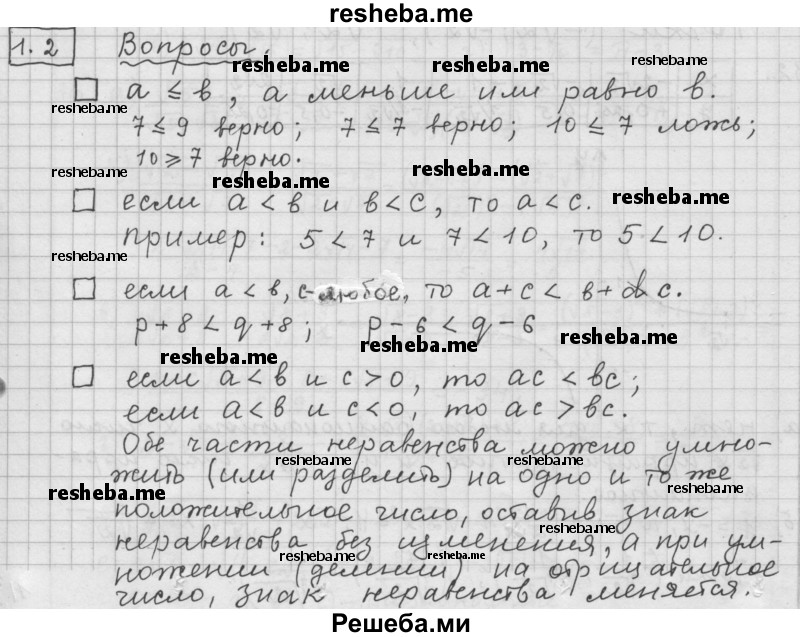 resheba.me
1.2 Вопросы.
resheba.me resheba.me resheba.me
a ≤ в, a меньше или равно в.
resheba.me
7 ≤ 9 верно; 7 ≤ 7 верно; 10 ≤ 7 ложь;
10 ⩾ 7 верно.
resheba.me resheba.me resheba.me
resheba.me resheba.me
если a < в и в < с, то a < с.
пример: 5 < 7 и 7 < 10, то 5 < 10.
resheba.me
если a < в, с-любое, то a + c < в + c.
p + 8 < q + 8; p − 6 < q − 6
resheba.me resheba.me resheba.me
если a < в и c > 0, то ac < вc;
если a < в и c < 0, то ac > вc.
Обе части неравенства можно умно-
resheba.me resheba.me
жить (или разделить) на одно и то же
resheba.me resheba.me
положительное число, оставив знак
resheba.me
неравенства без изменения, а при ум-
resheba.me resheba.me
ножении (делении) на отрицательное
число, знак неравенства меняется.
Решеба.ми